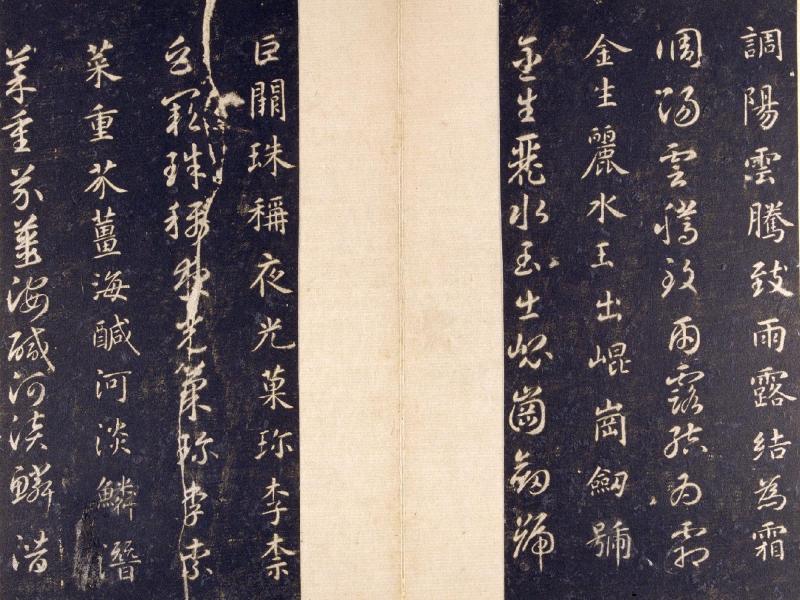 調陽雲騰致雨露結為霜
調陽雲騰致雨露結為霜
金生麗水玉出崐崗劒號
金生麗水玉出崐崗劒號
巨闕珠稱夜光菓珎李柰
巨闕珠稱夜光菓珎李柰
菜重芥薑海醎河淡鱗潛
菜重芥薑海醎河淡鱗潛